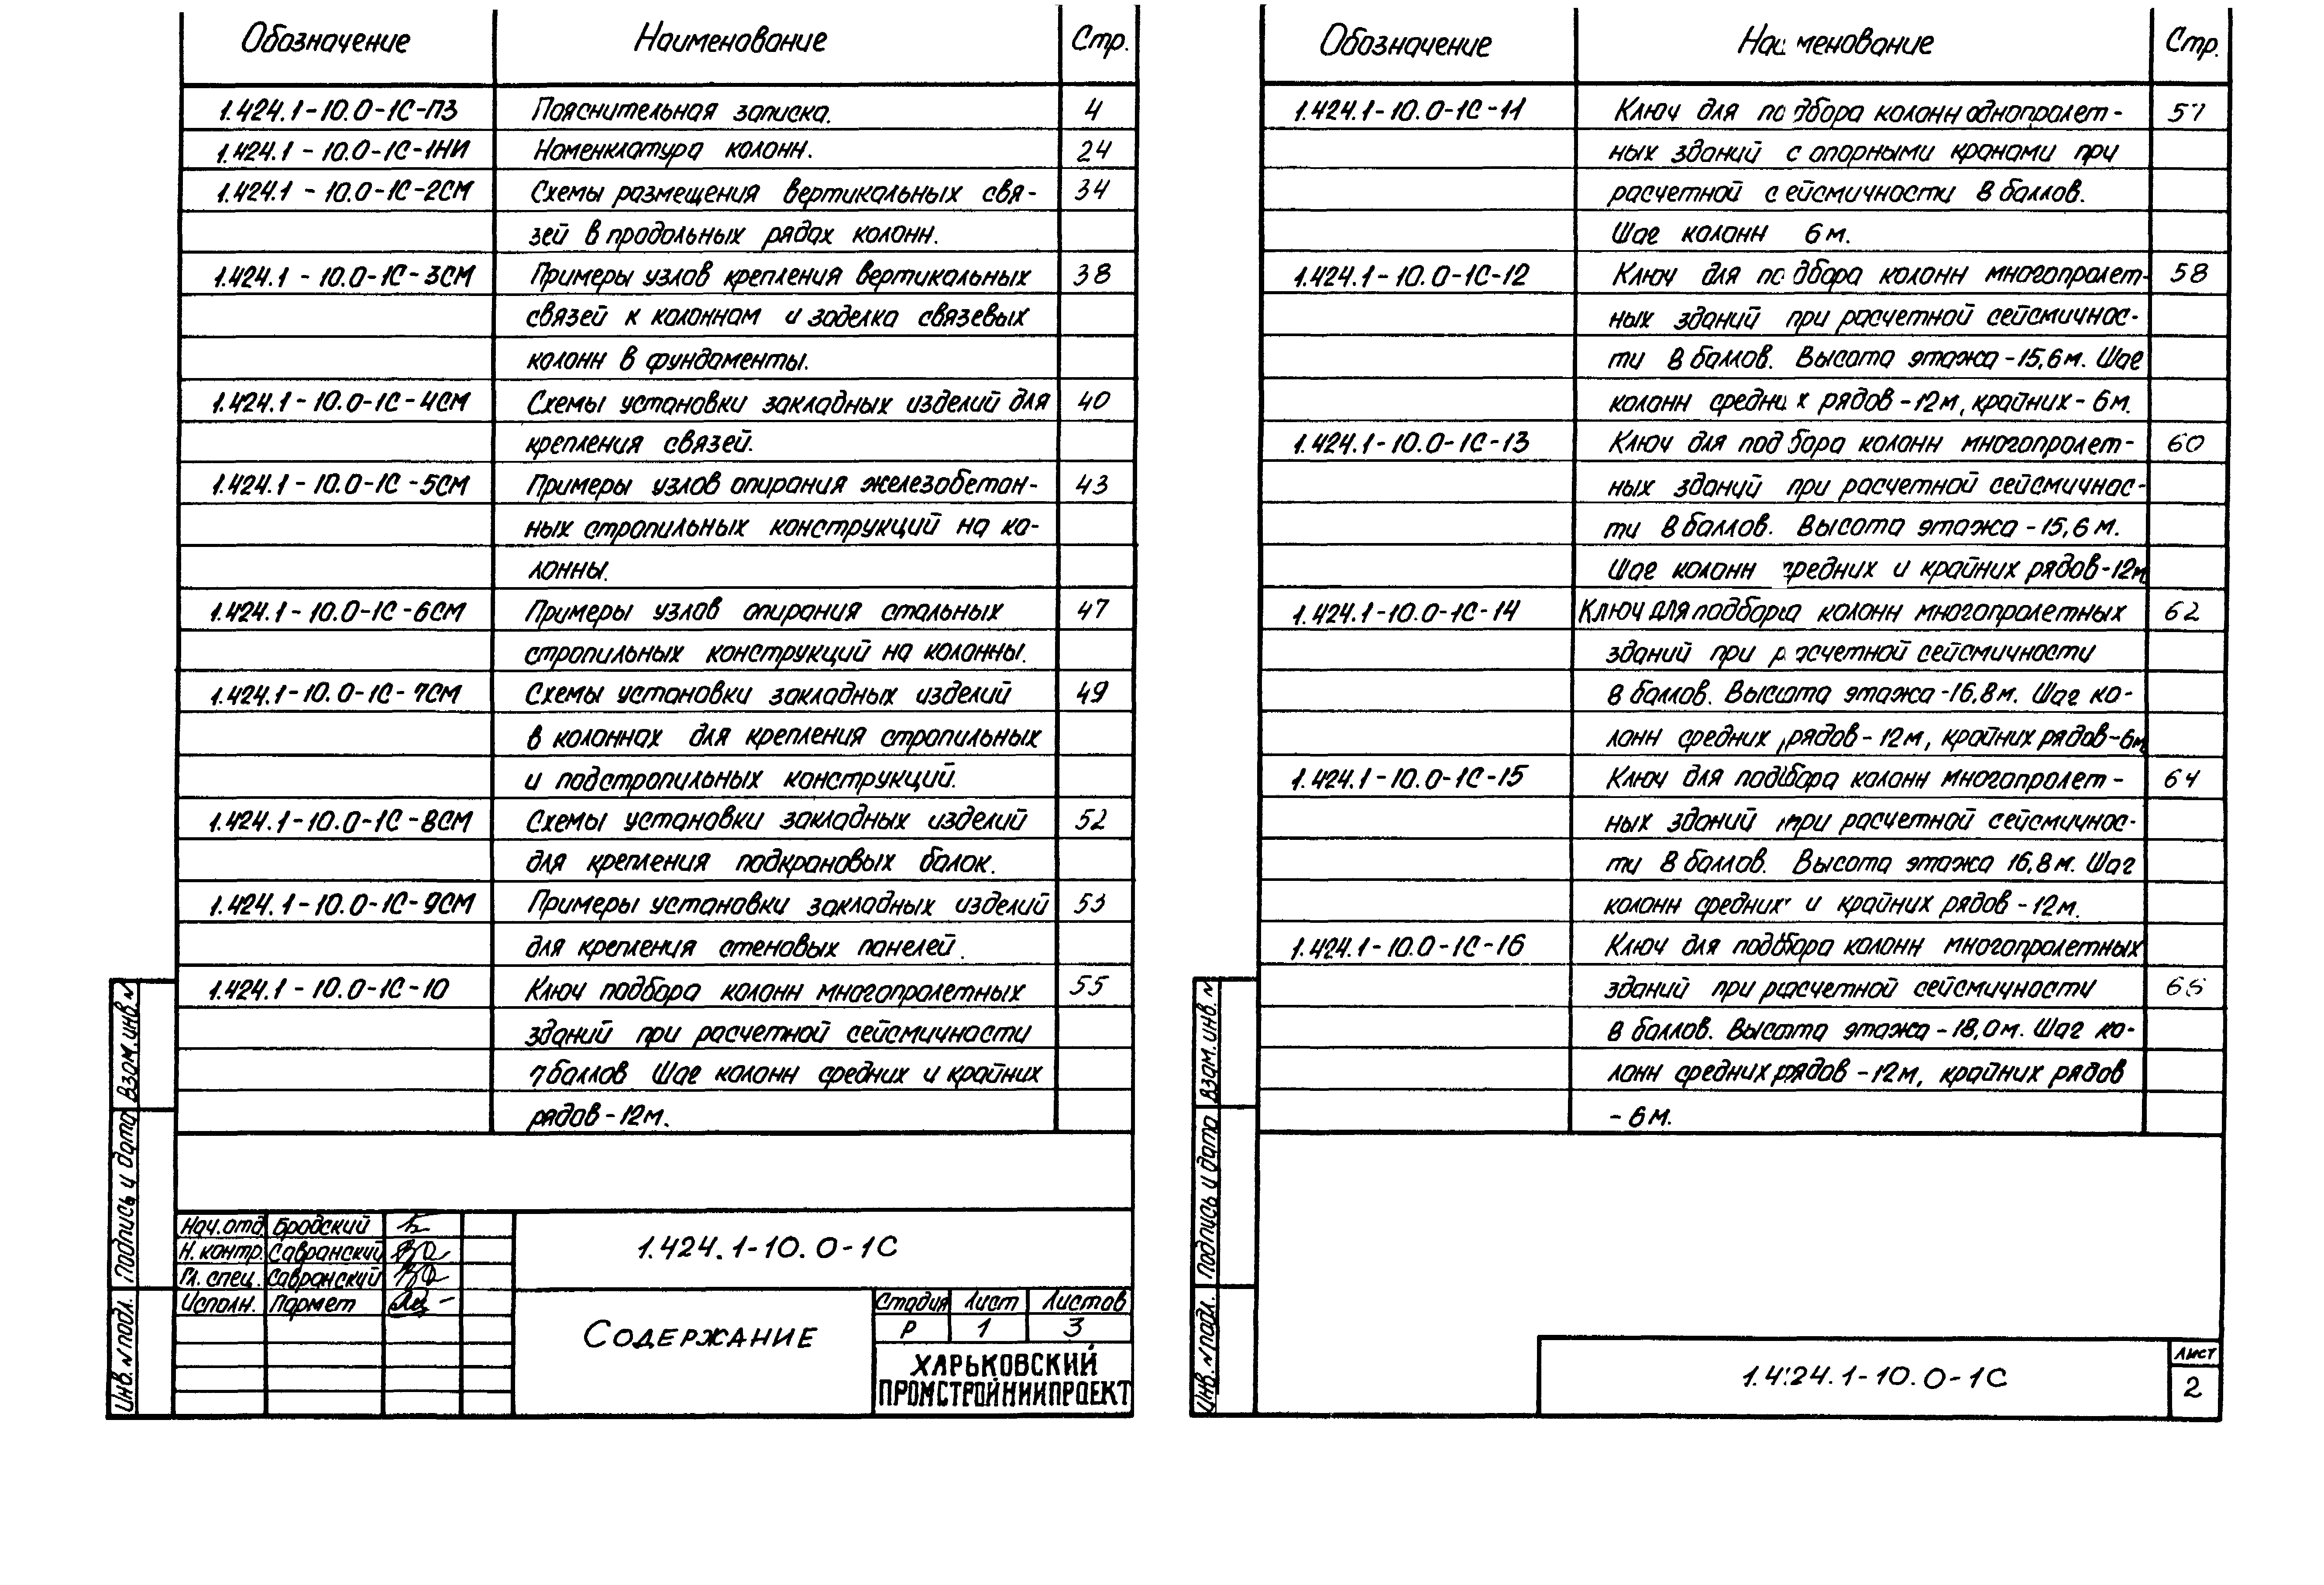 Обозначение Наименование Стр.
1.424.1-10.0-1С-ПЗ Пояснительная записка. 4
1.424.1-10.0-1С-1НИ Номенклатура колонн. 24
1.424.1-10.0-1С-2СМ Схемы размещения вертикальных свя- 34
зей в продольных рядах колонн.
1.424.1-10.0-1С-3СМ Примеры узлов крепления вертикальных 38
связей к колоннам и заделка связевых
колонн в фундаменты.
1.424.1-10.0-1С-4СМ Схемы установки закладных изделий для 40
крепления связей.
1.424.1-10.0-1С-5СМ Примеры узлов опирания железобетон- 43
ных стропильных конструкций на ко-
лонны.
1.424.1-10.0-1С-6СМ Примеры узлов опирания стальных 47
стропильных конструкций на колонны.
1.424.1-10.0-1С-7СМ Схемы установки закладных изделий 49
в колоннах для крепления стропильных
и подстропильных конструкций.
1.424.1-10.0-1С-8СМ Схемы установки закладных изделий 52
для крепления подкрановых балок.
1.424.1-10.0-1С-9СМ Примеры установки закладных изделий 53
для крепления стеновых панелей.
1.424.1-10.0-1С-10 Ключ подбора колонн многопролетных 55
зданий при расчетной сейсмичности
7 баллов Шаг колонн средних и крайних
рядов-12м.
Взам. инв. №
Подпись и дата
Инв. № подл.
Нач. отд. Бродский
Н. контр. Савранский
Гл. спец. Савранский
Исполн. Пармет
1.424.1-10.0-1С
Содержание
Стадия Лист Листов
Р 1 3
ХАРЬКОВСКИЙ
ПРОМСТРОЙНИИПРОЕКТ
Обозначение Наименование Стр.
1.424.1-10.0-1С-11 Ключ для подбора колонн однопролет- 57
ных зданий с опорными кранами при
расчетной сейсмичности 8 баллов.
Шаг колонн 6м.
1.424.1-10.0-1С-12 Ключ для подбора колонн многопролет- 58
ных зданий при расчетной сейсмичнос-
ти 8 баллов. Высота этажа-15,6м. Шаг
колонн средних рядов-12м, крайних-6м.
1.424.1-10.0-1С-13 Ключ для подбора колонн многопролет- 60
ных зданий при расчетной сейсмичнос-
ти 8 баллов. Высота этажа-15,6м.
Шаг колонн средних и крайних рядов-12м
1.424.1-10.0-1С-14 Ключ для подбора колонн многопролетных 62
зданий при расчетной сейсмичности
8 баллов. Высота этажа-16,8м. Шаг ко-
лонн средних рядов-12м, крайних рядов-6м
1.424.1-10.0-1С-15 Ключ для подбора колонн многопролет- 64
ных зданий при расчетной сейсмичнос-
ти 8 баллов. Высота этажа 16,8м. Шаг
колонн средних и крайних рядов-12м.
1.424.1-10.0-1С-16 Ключ для подбора колонн многопролетных
зданий при расчетной сейсмичности
8 баллов. Высота этажа-18,0м. Шаг ко-
лонн средних рядов-12м, крайних рядов
-6м.
Взам. инв. №
Подпись и дата
Инв. № подл.
1.424.1-10.0-1С
Лист
2